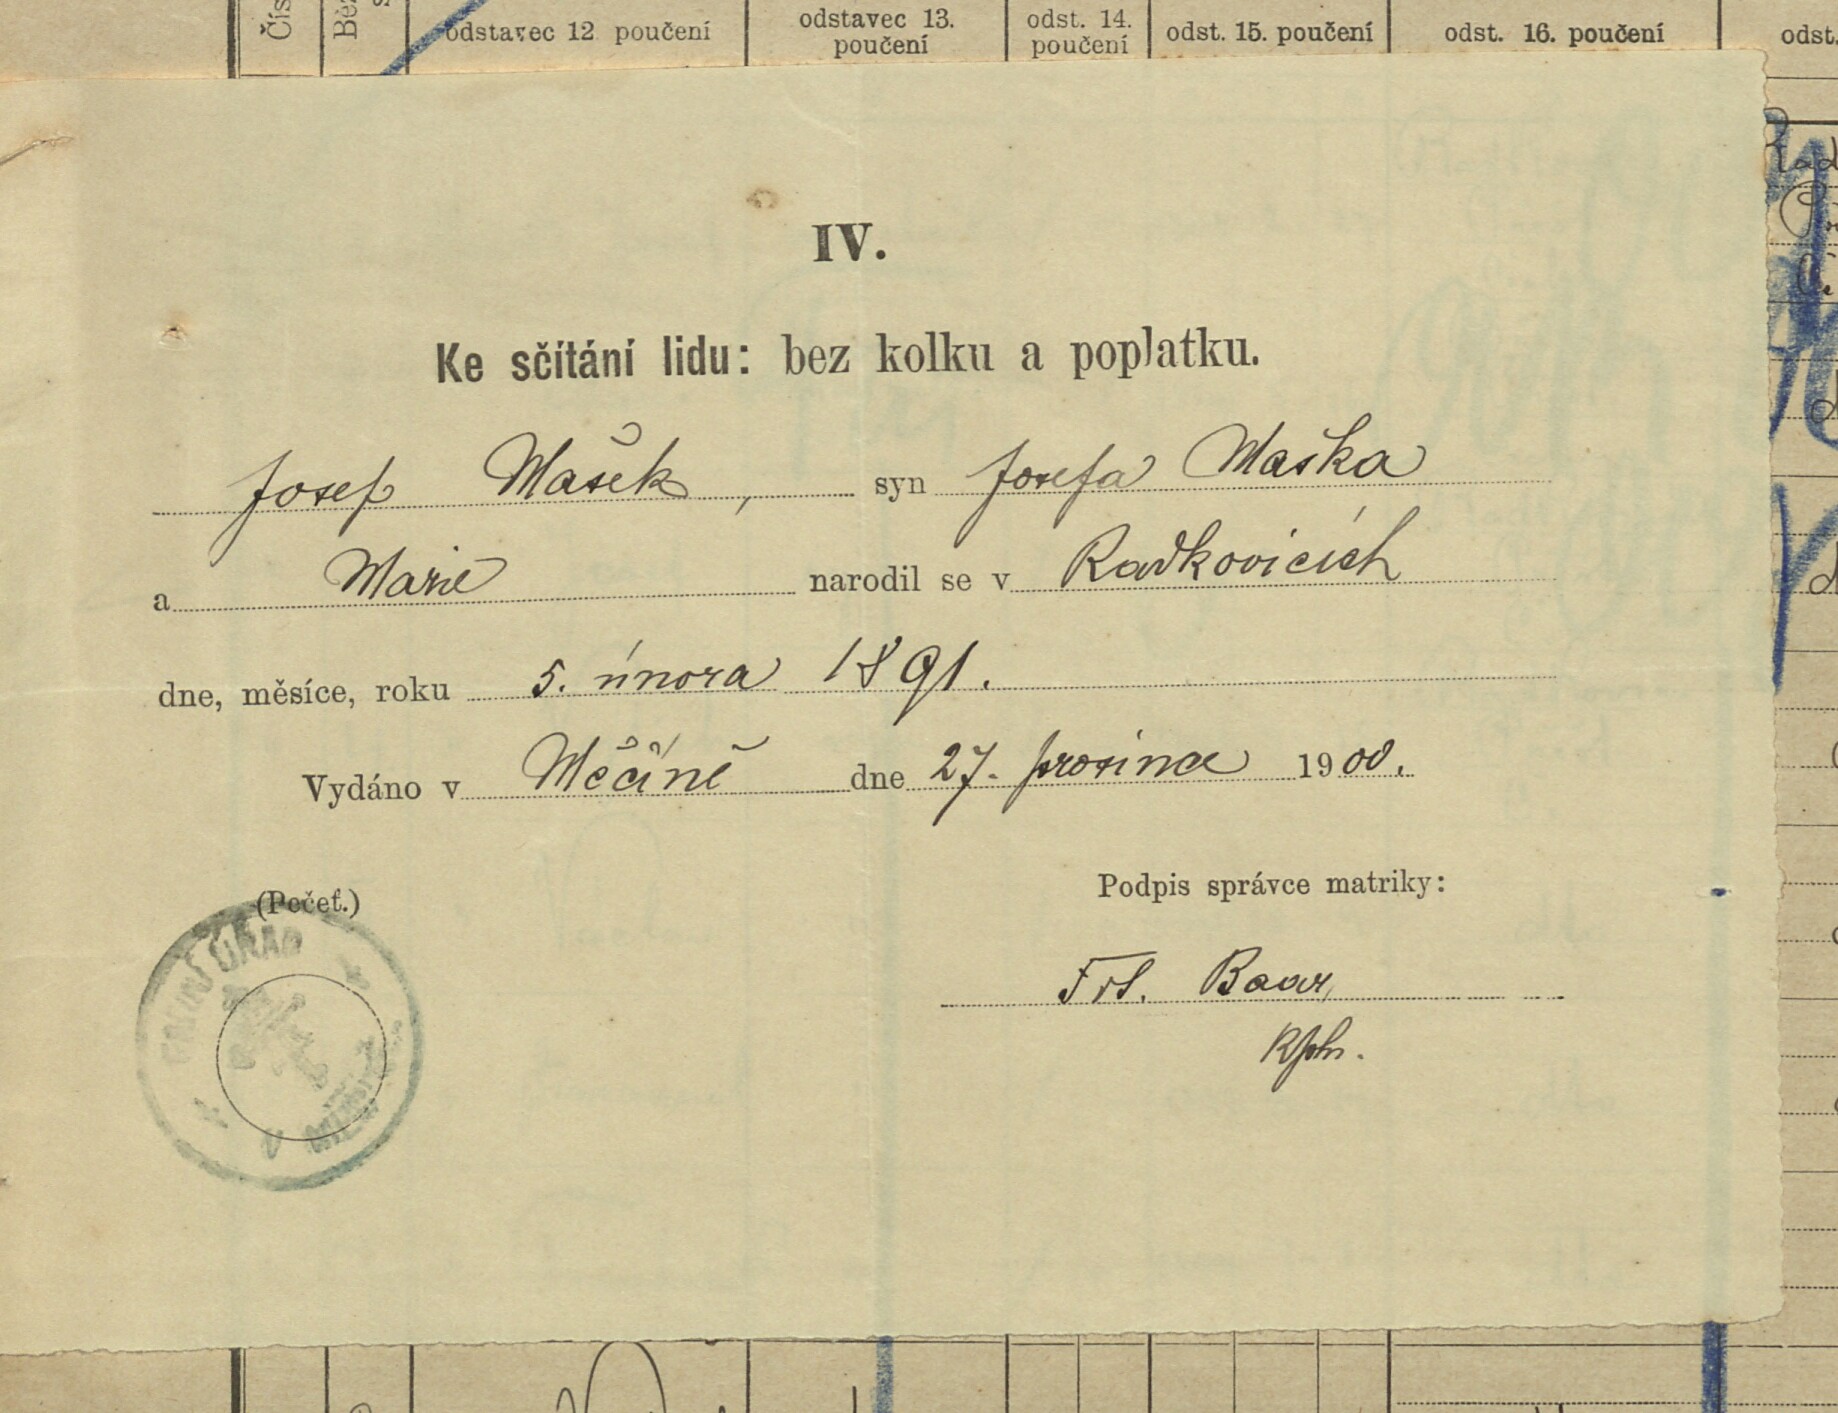 odstavec 12 poučení
odstavec 13.
poučení
odst. 14.
poučení
odst. 15. poučení
odst. 16. poučení
odst.
IV.
Ke sčítání lidu: bez kolku a poplatku.
Josef Mašek, syn Josefa Maška
a Marie narodil se v Radkovicích
dne, měsíce, roku 5. února 1891.
Vydáno v Měčíně dne 27. prosince 1900.
(Pečeť.)
Podpis správce matriky:
Frt. Baar,
ÚŘAD